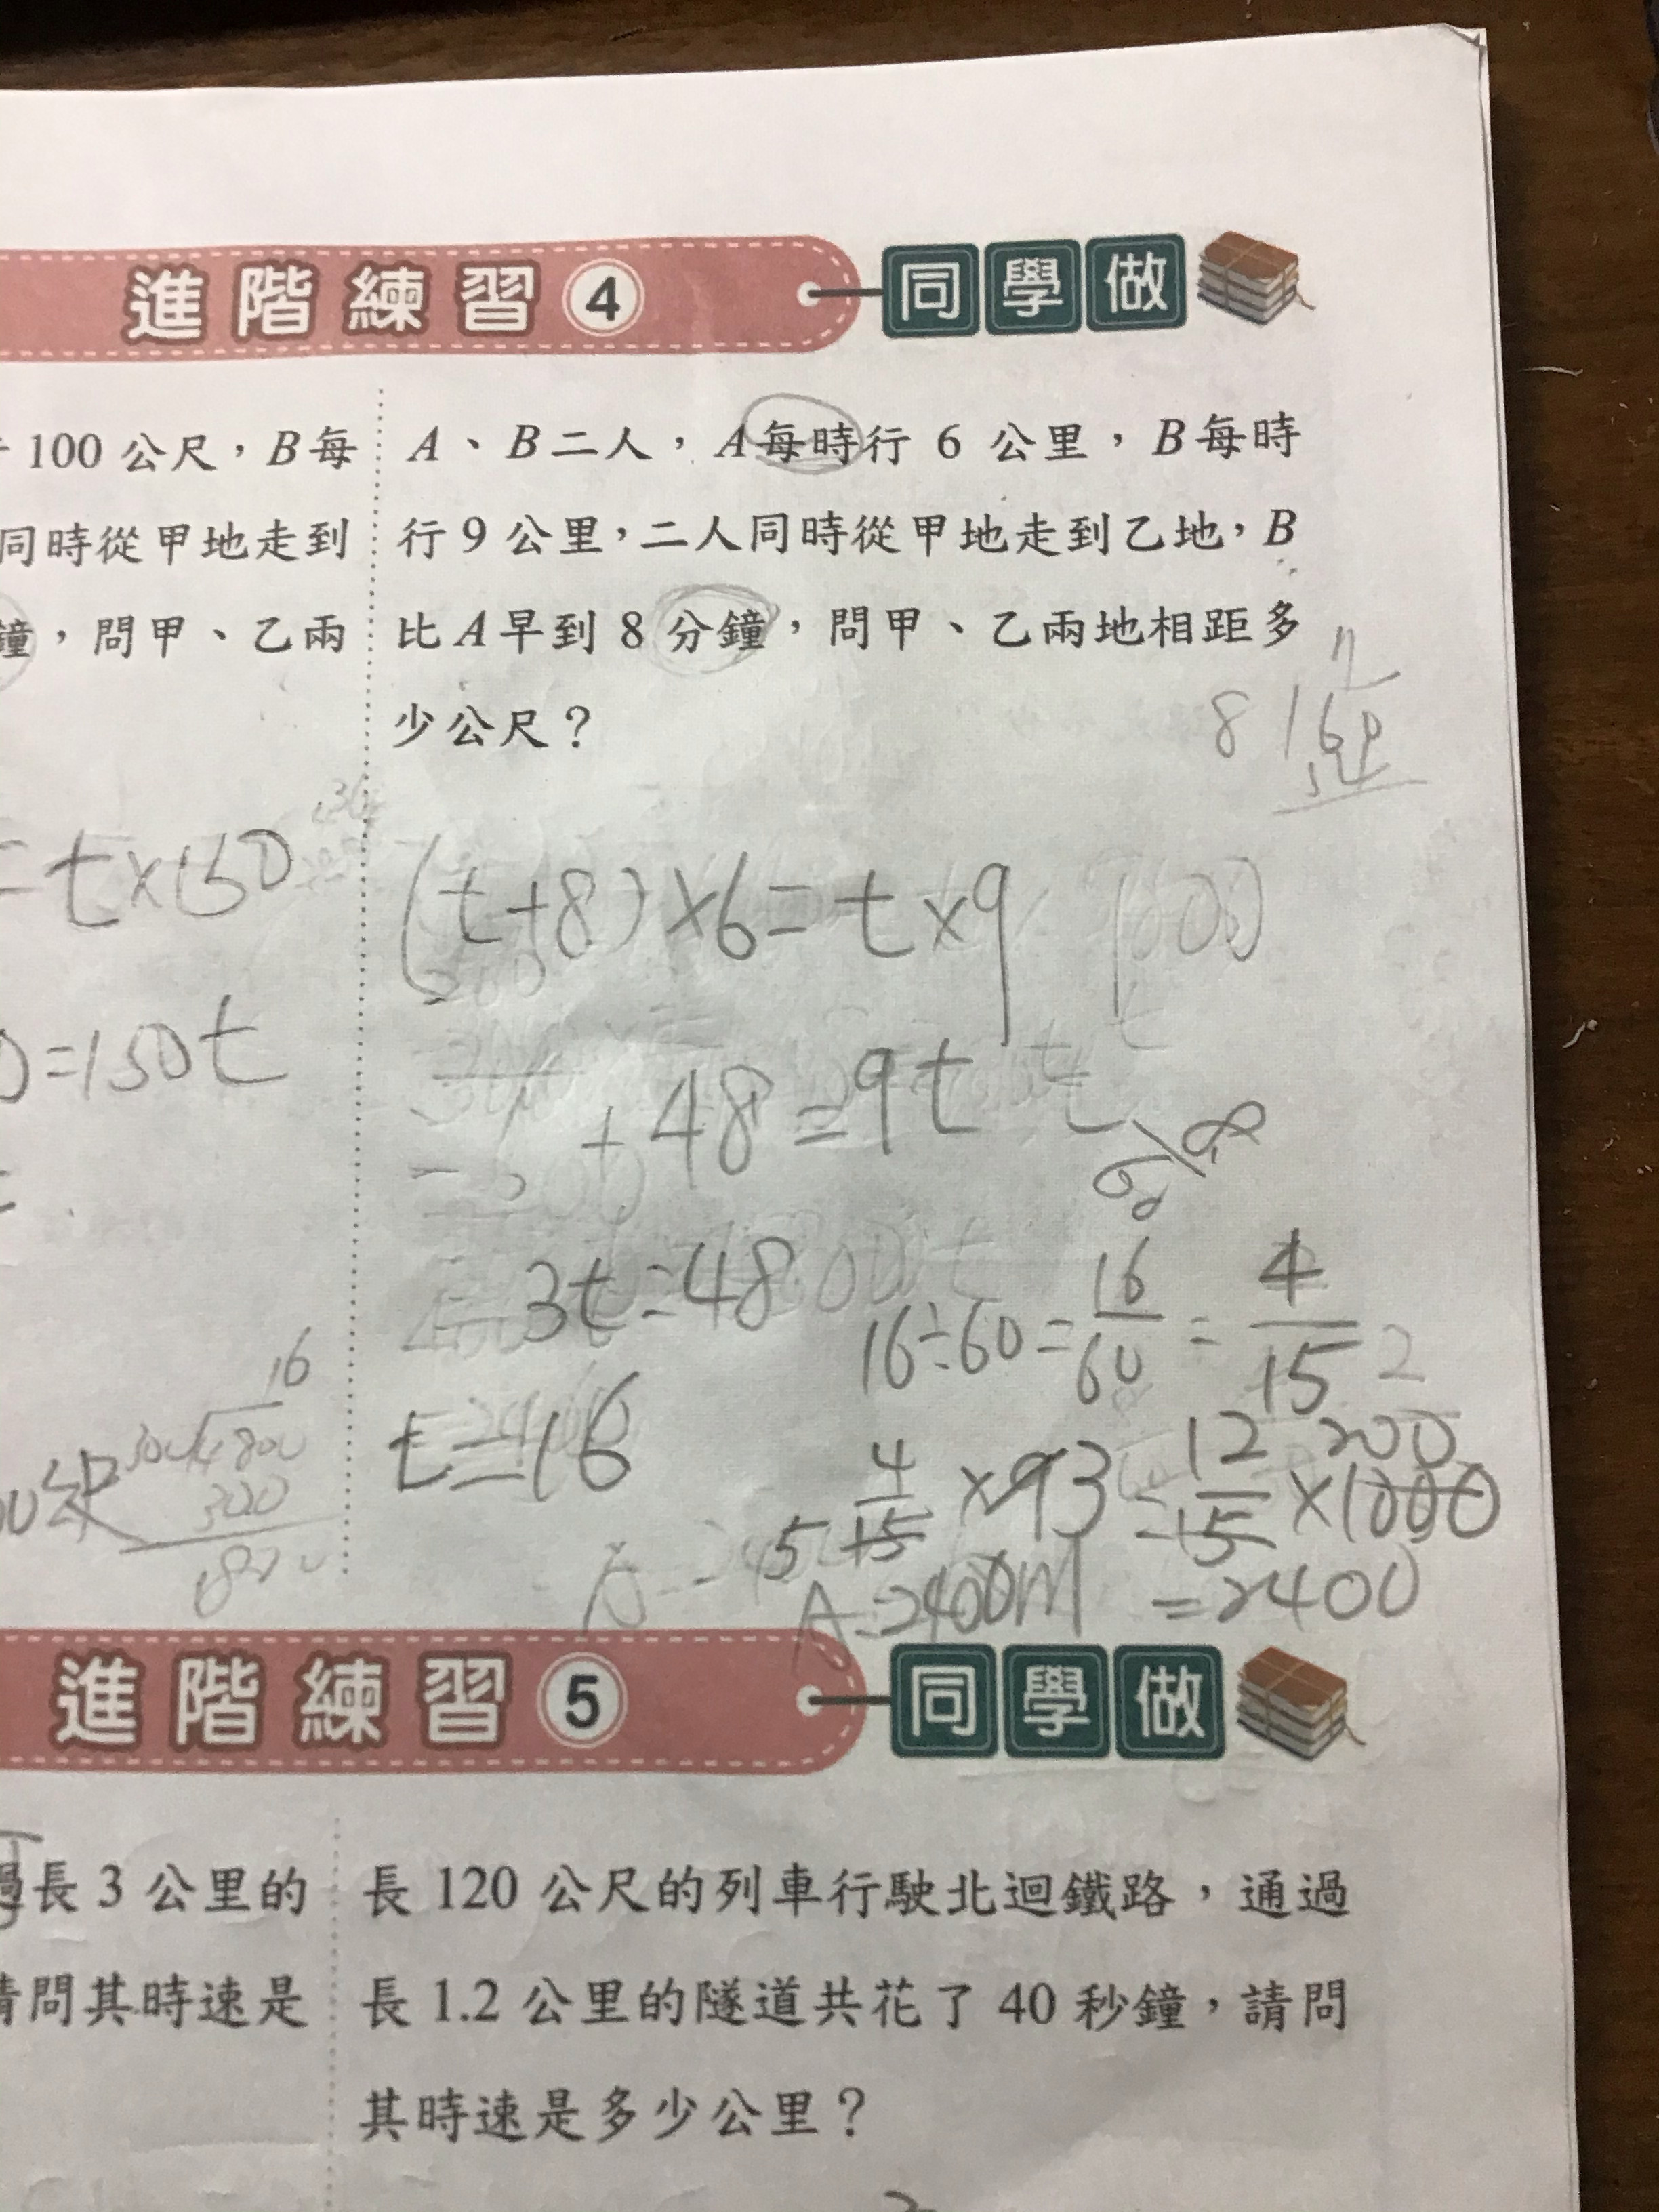 進階練習 4 同學做
100 公尺，B每
同時從甲地走到
鐘，問甲、乙兩
= t×150
=150t
16
A、B二人，A每時行 6 公里，B每時
行 9 公里，二人同時從甲地走到乙地，B
比A早到 8 分鐘，問甲、乙兩地相距多
少公尺？
(t+8)×6=t×9
+48=9t
3t=48
t=16
16÷60=16/60=4/15
=2400
A=2400m
進階練習 5 同學做
過長 3 公里的
請問其時速是
長 120 公尺的列車行駛北迴鐵路，通過
長 1.2 公里的隧道共花了 40 秒鐘，請問
其時速是多少公里？